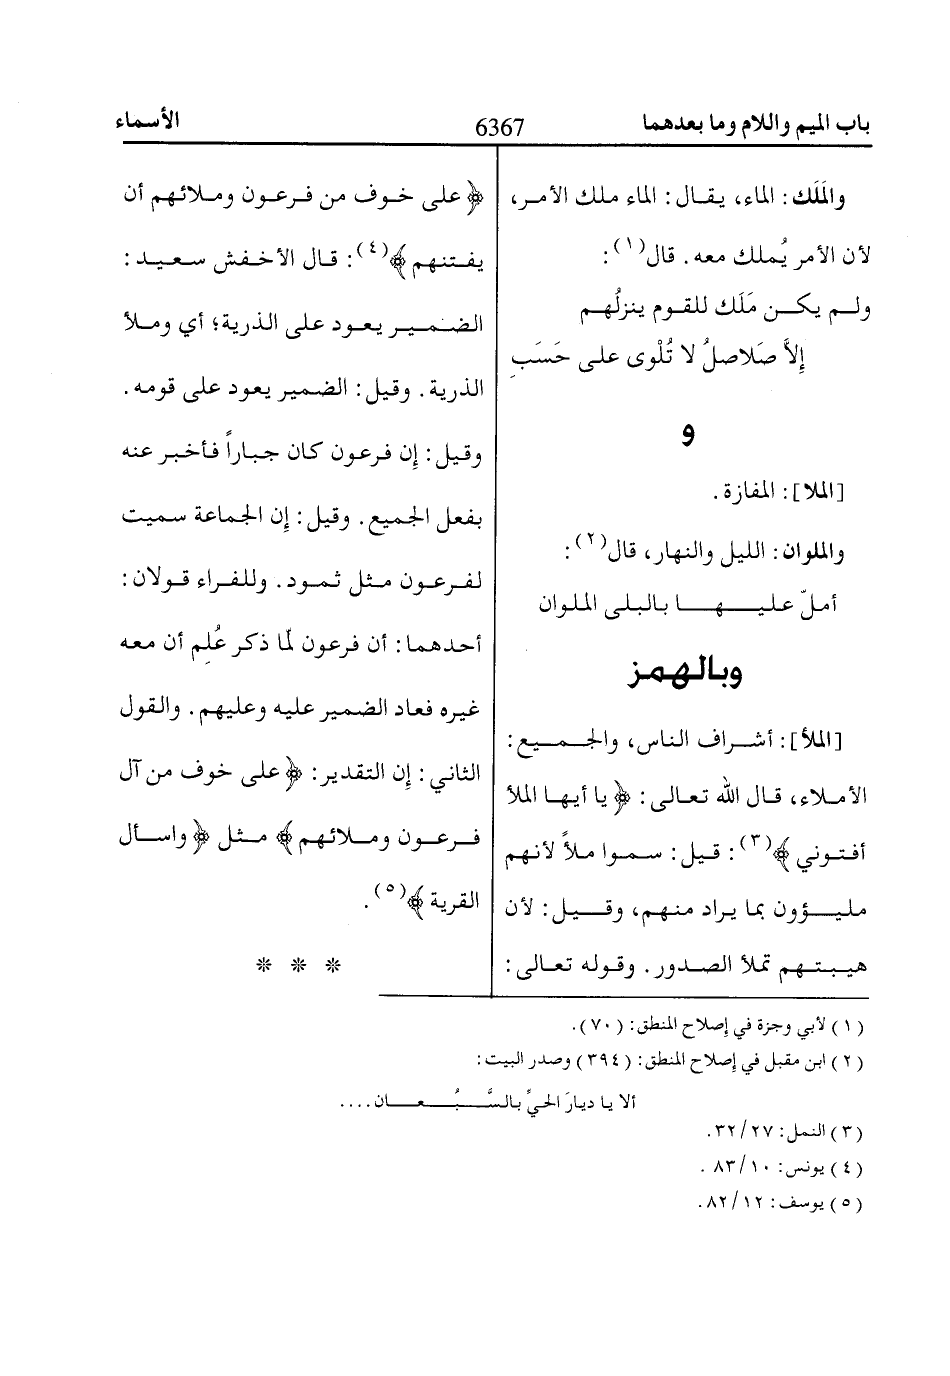 باب الميم واللام وما بعدهما 6367 الأسماء
والمَلَك: الماء، يقال: الماء ملك الأمر،
لأن الأمر يُملك معه. قال(١):
ولم يكن مَلَك للقوم ينزلُهم
إلاَّ صَلاصلُ لا تُلْوى على حَسَبِ
و
[الملا]: المفازة.
والملوان: الليل والنهار، قال(٢):
أملّ عليها بالبلى الملوان
وبالهمز
[الملأ]: أشراف الناس، والجميع:
الأملاء، قال الله تعالى: ﴿يا أيها الملأ
أفتوني﴾(٣): قيل: سموا ملأً لأنهم
مليؤون بما يراد منهم، وقيل: لأن
هيبتهم تملأ الصدور. وقوله تعالى:
﴿على خوف من فرعون وملائهم أن
يفتنهم﴾(٤): قال الأخفش سعيد:
الضمير يعود على الذرية؛ أي وملأ
الذرية. وقيل: الضمير يعود على قومه.
وقيل: إن فرعون كان جباراً فأخبر عنه
بفعل الجميع. وقيل: إن الجماعة سميت
لفرعون مثل ثمود. وللفراء قولان:
أحدهما: أن فرعون لمّا ذكر عُلِم أن معه
غيره فعاد الضمير عليه وعليهم. والقول
الثاني: إن التقدير: ﴿على خوف من آل
فرعون وملائهم﴾ مثل ﴿واسأل
القرية﴾(٥).
* * *
(١) لأبي وجزة في إصلاح المنطق: (٧٠).
(٢) ابن مقبل في إصلاح المنطق: (٣٩٤) وصدر البيت:
ألا يا ديارَ الحيِّ بالسَّبُعان....
(٣) النمل: ٣٢/٢٧.
(٤) يونس: ٨٣/١٠.
(٥) يوسف: ٨٢/١٢.